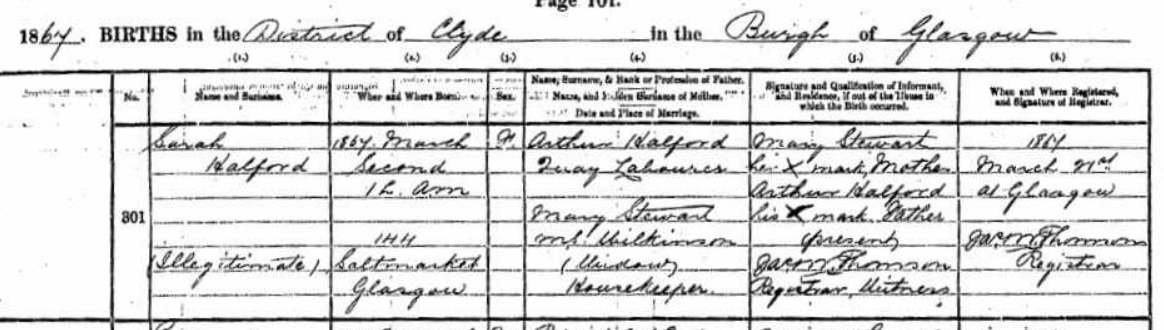 Page 101.
1867. BIRTHS in the District of Clyde in the Burgh of Glasgow
(1.) (2.) (3.) (4.) (5.) (6.)
No.
Name and Surname.
When and Where Born.
Sex.
Name, Surname, & Rank or Profession of Father.
Name, and Maiden Surname of Mother.
Date and Place of Marriage.
Signature and Qualification of Informant,
and Residence, if out of the House in
which the Birth occurred.
When and Where Registered,
and Signature of Registrar.
801
Sarah
Halford
(Illegitimate)
1867. March
Second
1h. Am
144
Saltmarket
Glasgow
F.
Arthur Halford
Quay Labourer
Mary Stewart
m.s. Wilkinson
(Widow)
Housekeeper.
Mary Stewart
her X mark, Mother
Arthur Halford
his X mark, Father
(present)
Thomson
Registrar, Witness
1867
March
at Glasgow
Thomson
Registrar